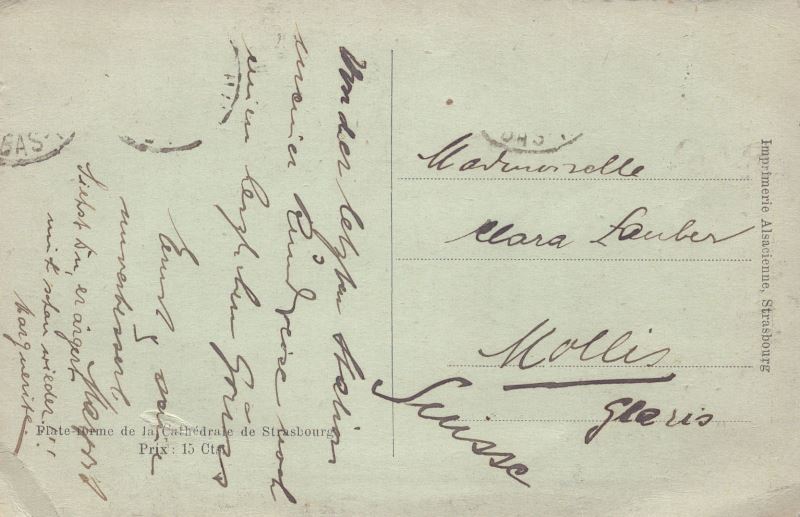 Von der letzten Station
meiner Rundreise noch
einen herzlichen Gruss
Ernst, seine
unverbesserl.
Siehst Du, er ärgert
mich schon wieder!!!
Marguerite
Mademoiselle
Clara Lauber
Mollis
Glaris
Suisse
Plate-forme de la Cathédrale de Strasbourg
Prix: 15 Cts.
Imprimerie Alsacienne, Strasbourg